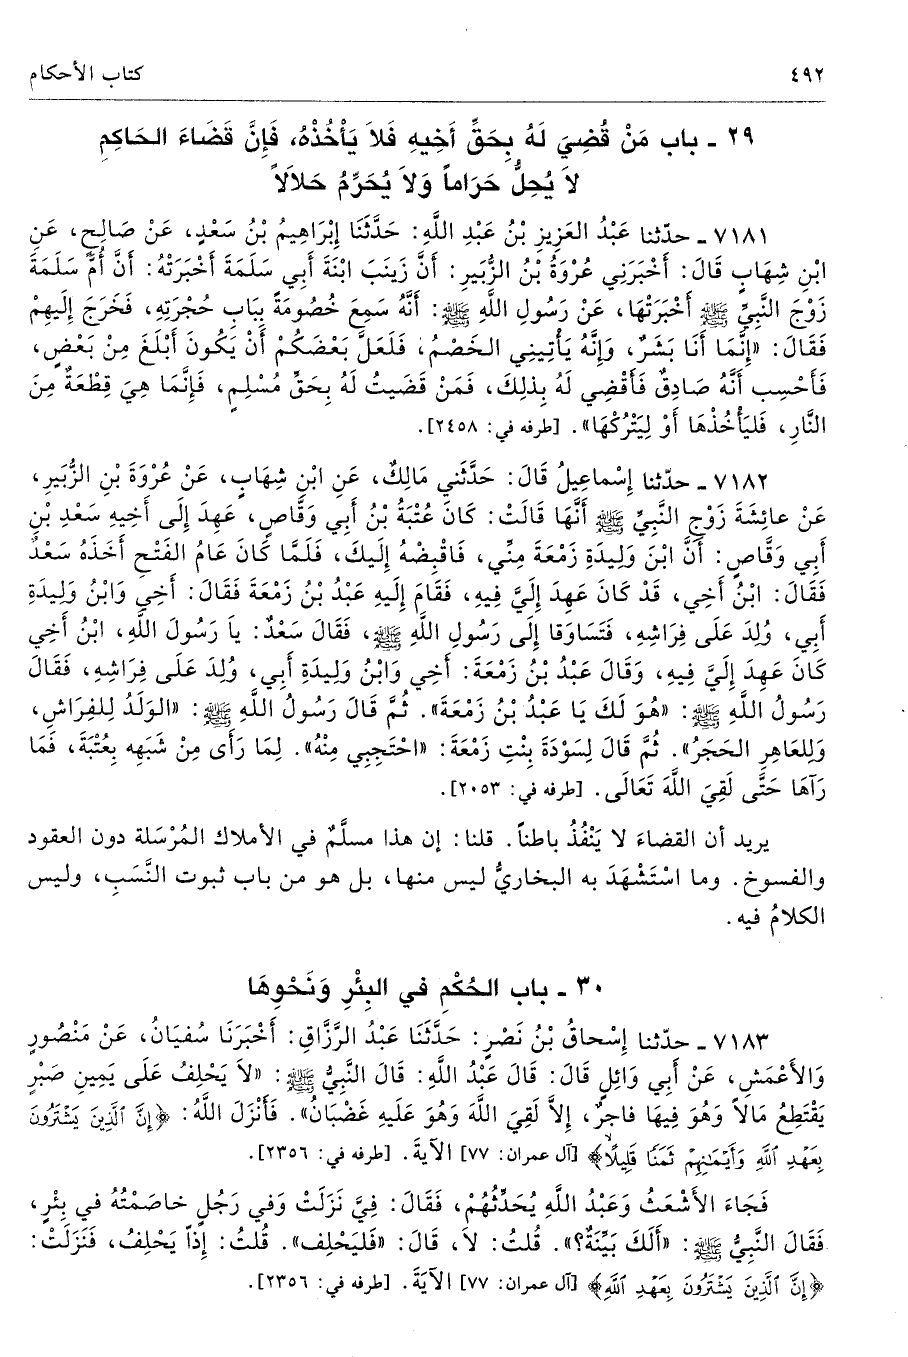 ٤٩٢ كتاب الأحكام
٢٩ - باب مَنْ قُضِيَ لَهُ بِحَقِّ أَخِيهِ فَلاَ يَأْخُذْهُ، فَإِنَّ قَضَاءَ الحَاكِمِ
لاَ يُحِلُّ حَرَاماً وَلاَ يُحَرِّمُ حَلاَلاً
٧١٨١ - حدّثنا عَبْدُ العَزِيزِ بْنُ عَبْدِ اللَّهِ: حَدَّثَنَا إِبْرَاهِيمُ بْنُ سَعْدٍ، عَنْ صَالِحٍ، عَنِ
ابْنِ شِهَابٍ قَالَ: أَخْبَرَنِي عُرْوَةُ بْنُ الزُّبَيرِ: أَنَّ زَينَبَ ابْنَةَ أَبِي سَلَمَةَ أَخْبَرَتْهُ: أَنَّ أُمَّ سَلَمَةَ
زَوْجَ النَّبِيِّ ﷺ أَخْبَرَتْهَا، عَنْ رَسُولِ اللَّهِ ﷺ: أَنَّهُ سَمِعَ خُصُومَةً بِبَابِ حُجْرَتِهِ، فَخَرَجَ إِلَيهِمْ
فَقَالَ: «إِنَّمَا أَنَا بَشَرٌ، وَإِنَّهُ يَأْتِينِي الخَصْمُ، فَلَعَلَّ بَعْضَكُمْ أَنْ يَكُونَ أَبْلَغَ مِنْ بَعْضٍ،
فَأَحْسِب أَنَّهُ صَادِقٌ فَأَقْضِي لَهُ بِذلِكَ، فَمَنْ قَضَيتُ لَهُ بِحَقِّ مُسْلِمٍ، فَإِنَّمَا هِيَ قِطْعَةٌ مِنَ
النَّارِ، فَليَأْخُذْهَا أَوْ لِيَتْرُكْهَا». [طرفه في: ٢٤٥٨].
٧١٨٢ - حدّثنا إِسْماعِيلُ قَالَ: حَدَّثَنِي مَالِكٌ، عَنِ ابْنِ شِهَابٍ، عَنْ عُرْوَةَ بْنِ الزُّبَيرِ،
عَنْ عائِشَةَ زَوْجِ النَّبِيِّ ﷺ أَنَّهَا قَالَتْ: كَانَ عُتْبَةُ بْنُ أَبِي وَقَّاصٍ، عَهِدَ إِلَى أَخِيهِ سَعْدِ بْنِ
أَبِي وَقَّاصٍ: أَنَّ ابْنَ وَلِيدَةِ زَمْعَةَ مِنِّي، فَاقْبِضْهُ إِلَيكَ، فَلَمَّا كَانَ عَامُ الفَتْحِ أَخَذَهُ سَعْدٌ
فَقَالَ: ابْنُ أَخِي، قَدْ كَانَ عَهِدَ إِلَيَّ فِيهِ، فَقَامَ إِلَيهِ عَبْدُ بْنُ زَمْعَةَ فَقَالَ: أَخِي وَابْنُ وَلِيدَةِ
أَبِي، وُلِدَ عَلَى فِرَاشِهِ، فَتَسَاوَقَا إِلَى رَسُولِ اللَّهِ ﷺ، فَقَالَ سَعْدٌ: يَا رَسُولَ اللَّهِ، ابْنُ أَخِي
كَانَ عَهِدَ إِلَيَّ فِيهِ، وَقَالَ عَبْدُ بْنُ زَمْعَةَ: أَخِي وَابْنُ وَلِيدَةِ أَبِي، وُلِدَ عَلَى فِرَاشِهِ، فَقَالَ
رَسُولُ اللَّهِ ﷺ: «هُوَ لَكَ يَا عَبْدُ بْنُ زَمْعَةَ». ثُمَّ قَالَ رَسُولُ اللَّهِ ﷺ: «الوَلَدُ لِلفِرَاشِ،
وَلِلعَاهِرِ الحَجَرُ». ثُمَّ قَالَ لِسَوْدَةَ بِنْتِ زَمْعَةَ: «احْتَجِبِي مِنْهُ». لِمَا رَأَى مِنْ شَبَهِهِ بِعُتْبَةَ، فَمَا
رَآهَا حَتَّى لَقِيَ اللَّهَ تَعَالَى. [طرفه في: ٢٠٥٣].
يريد أن القضاءَ لا يَنْفُذُ باطناً. قلنا: إن هذا مسلَّمٌ في الأملاك المُرْسَلة دون العقود
والفسوخ. وما اسْتَشْهَدَ به البخاريُّ ليس منها، بل هو من باب ثبوت النَّسَبِ، وليس
الكلامُ فيه.
٣٠ - باب الحُكْمِ في البِئْرِ وَنَحْوِهَا
٧١٨٣ - حدّثنا إِسْحاقُ بْنُ نَصْرٍ: حَدَّثَنَا عَبْدُ الرَّزَّاقِ: أَخْبَرَنَا سُفيَانُ، عَنْ مَنْصُورٍ
وَالأَعْمَشِ، عَنْ أَبِي وَائِلٍ قَالَ: قَالَ عَبْدُ اللَّهِ: قَالَ النَّبِيُّ ﷺ: «لاَ يَحْلِفُ عَلَى يَمِينِ صَبْرٍ
يَقْتَطِعُ مَالاً وَهُوَ فِيهَا فاجِرٌ، إِلاَّ لَقِيَ اللَّهَ وَهُوَ عَلَيهِ غَضْبَانُ». فَأَنْزَلَ اللَّهُ: ﴿إِنَّ الَّذِينَ يَشْتَرُونَ
بِعَهْدِ اللَّهِ وَأَيْمَانِهِمْ ثَمَنًا قَلِيلًا﴾ [آل عمران: ٧٧] الآيَةَ. [طرفه في: ٢٣٥٦].
فَجَاءَ الأَشْعَثُ وَعَبْدُ اللَّهِ يُحَدِّثُهُمْ، فَقَالَ: فِيَّ نَزَلَتْ وَفي رَجُلٍ خاصَمْتُهُ في بِئْرٍ،
فَقَالَ النَّبِيُّ ﷺ: «أَلَكَ بَيِّنَةٌ؟». قُلتُ: لاَ، قَالَ: «فَليَحْلِف». قُلتُ: إِذاً يَحْلِفُ، فَنَزَلَتْ:
﴿إِنَّ الَّذِينَ يَشْتَرُونَ بِعَهْدِ اللَّهِ﴾ [آل عمران: ٧٧] الآيَةَ. [طرفه في: ٢٣٥٦].